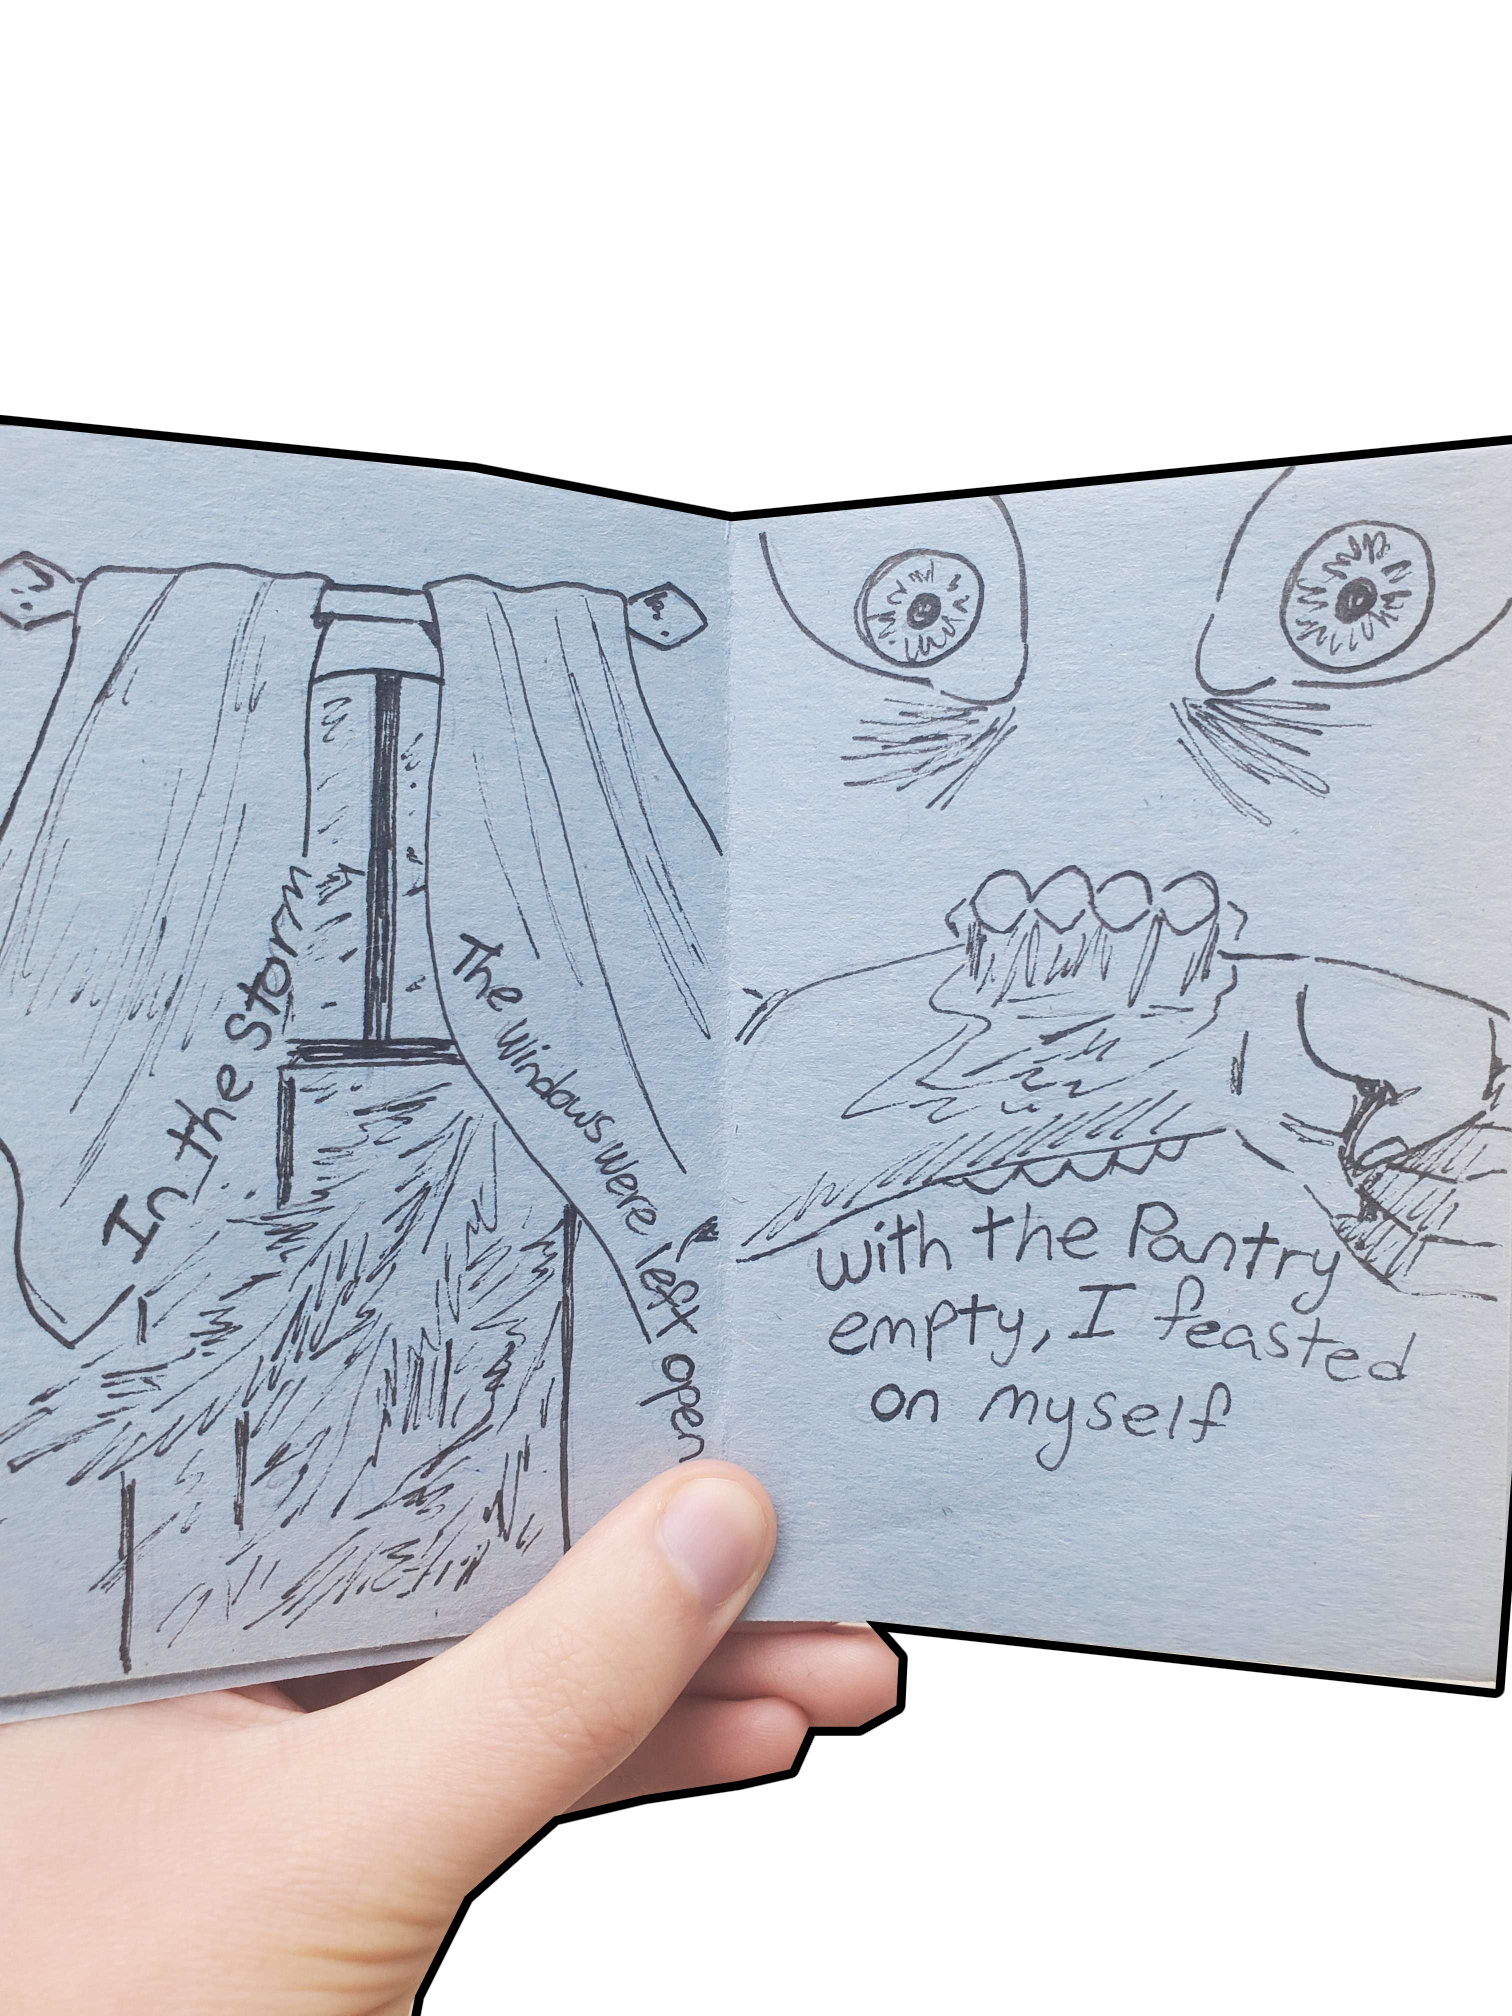 In the Storm
The windows were left open
with the Pantry
empty, I feasted
on myself